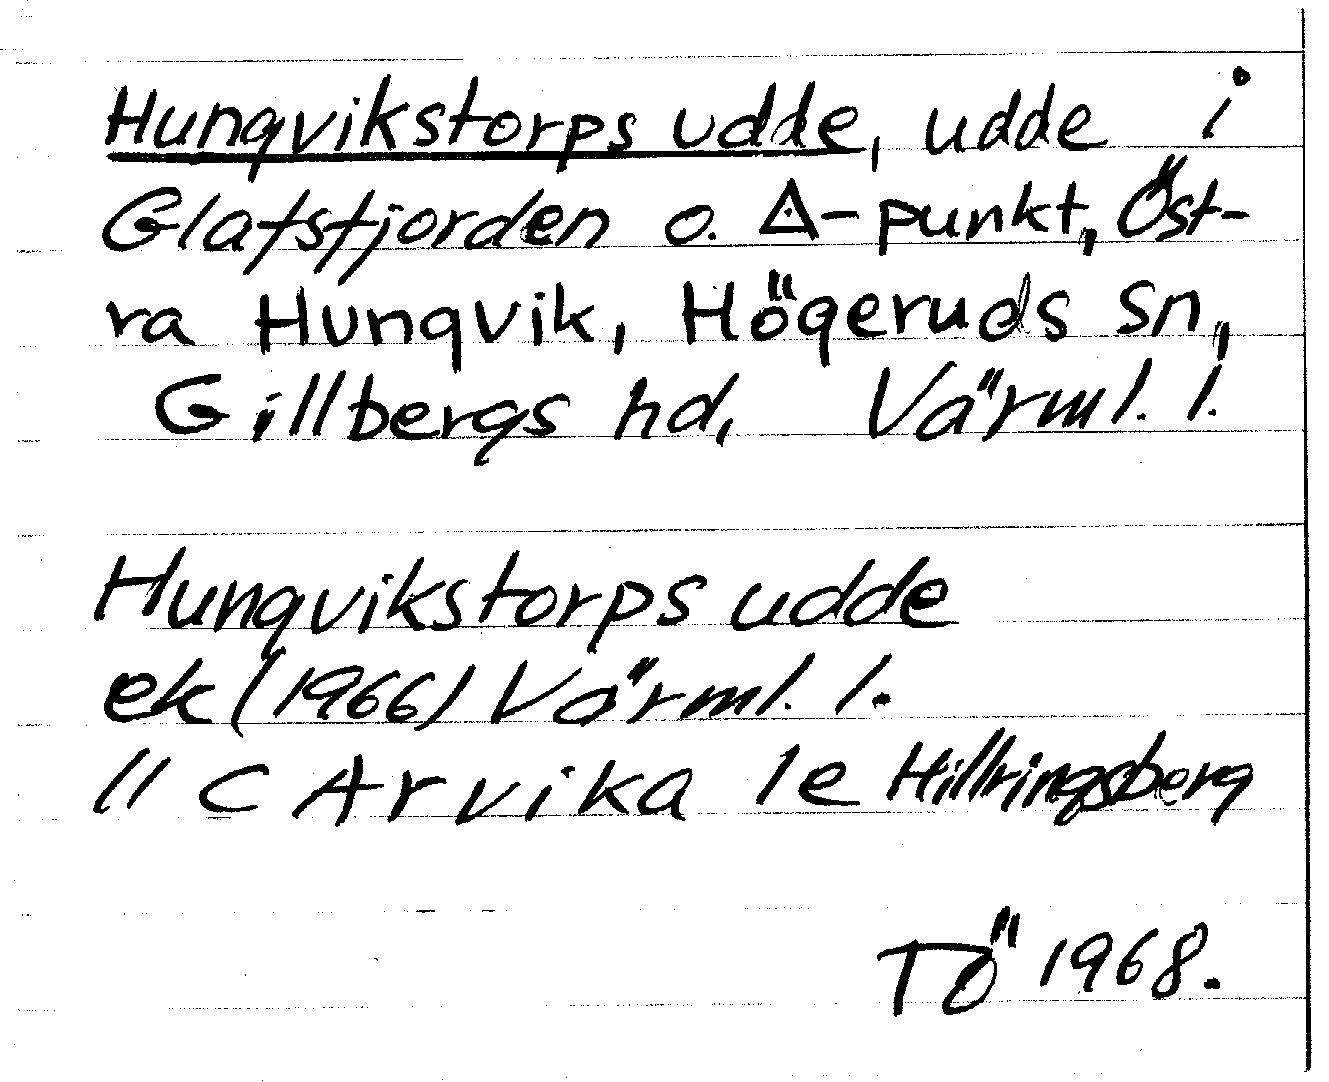 Hungvikstorps udde, udde i
Glafsfjorden o. △-punkt, Öst-
ra Hungvik, Högeruds sn,
Gillbergs hd, Värml. l.
Hungvikstorps udde
ek (1966) Värml. l.
11 C Arvika 1e Hillringsberg
TÖ 1968.